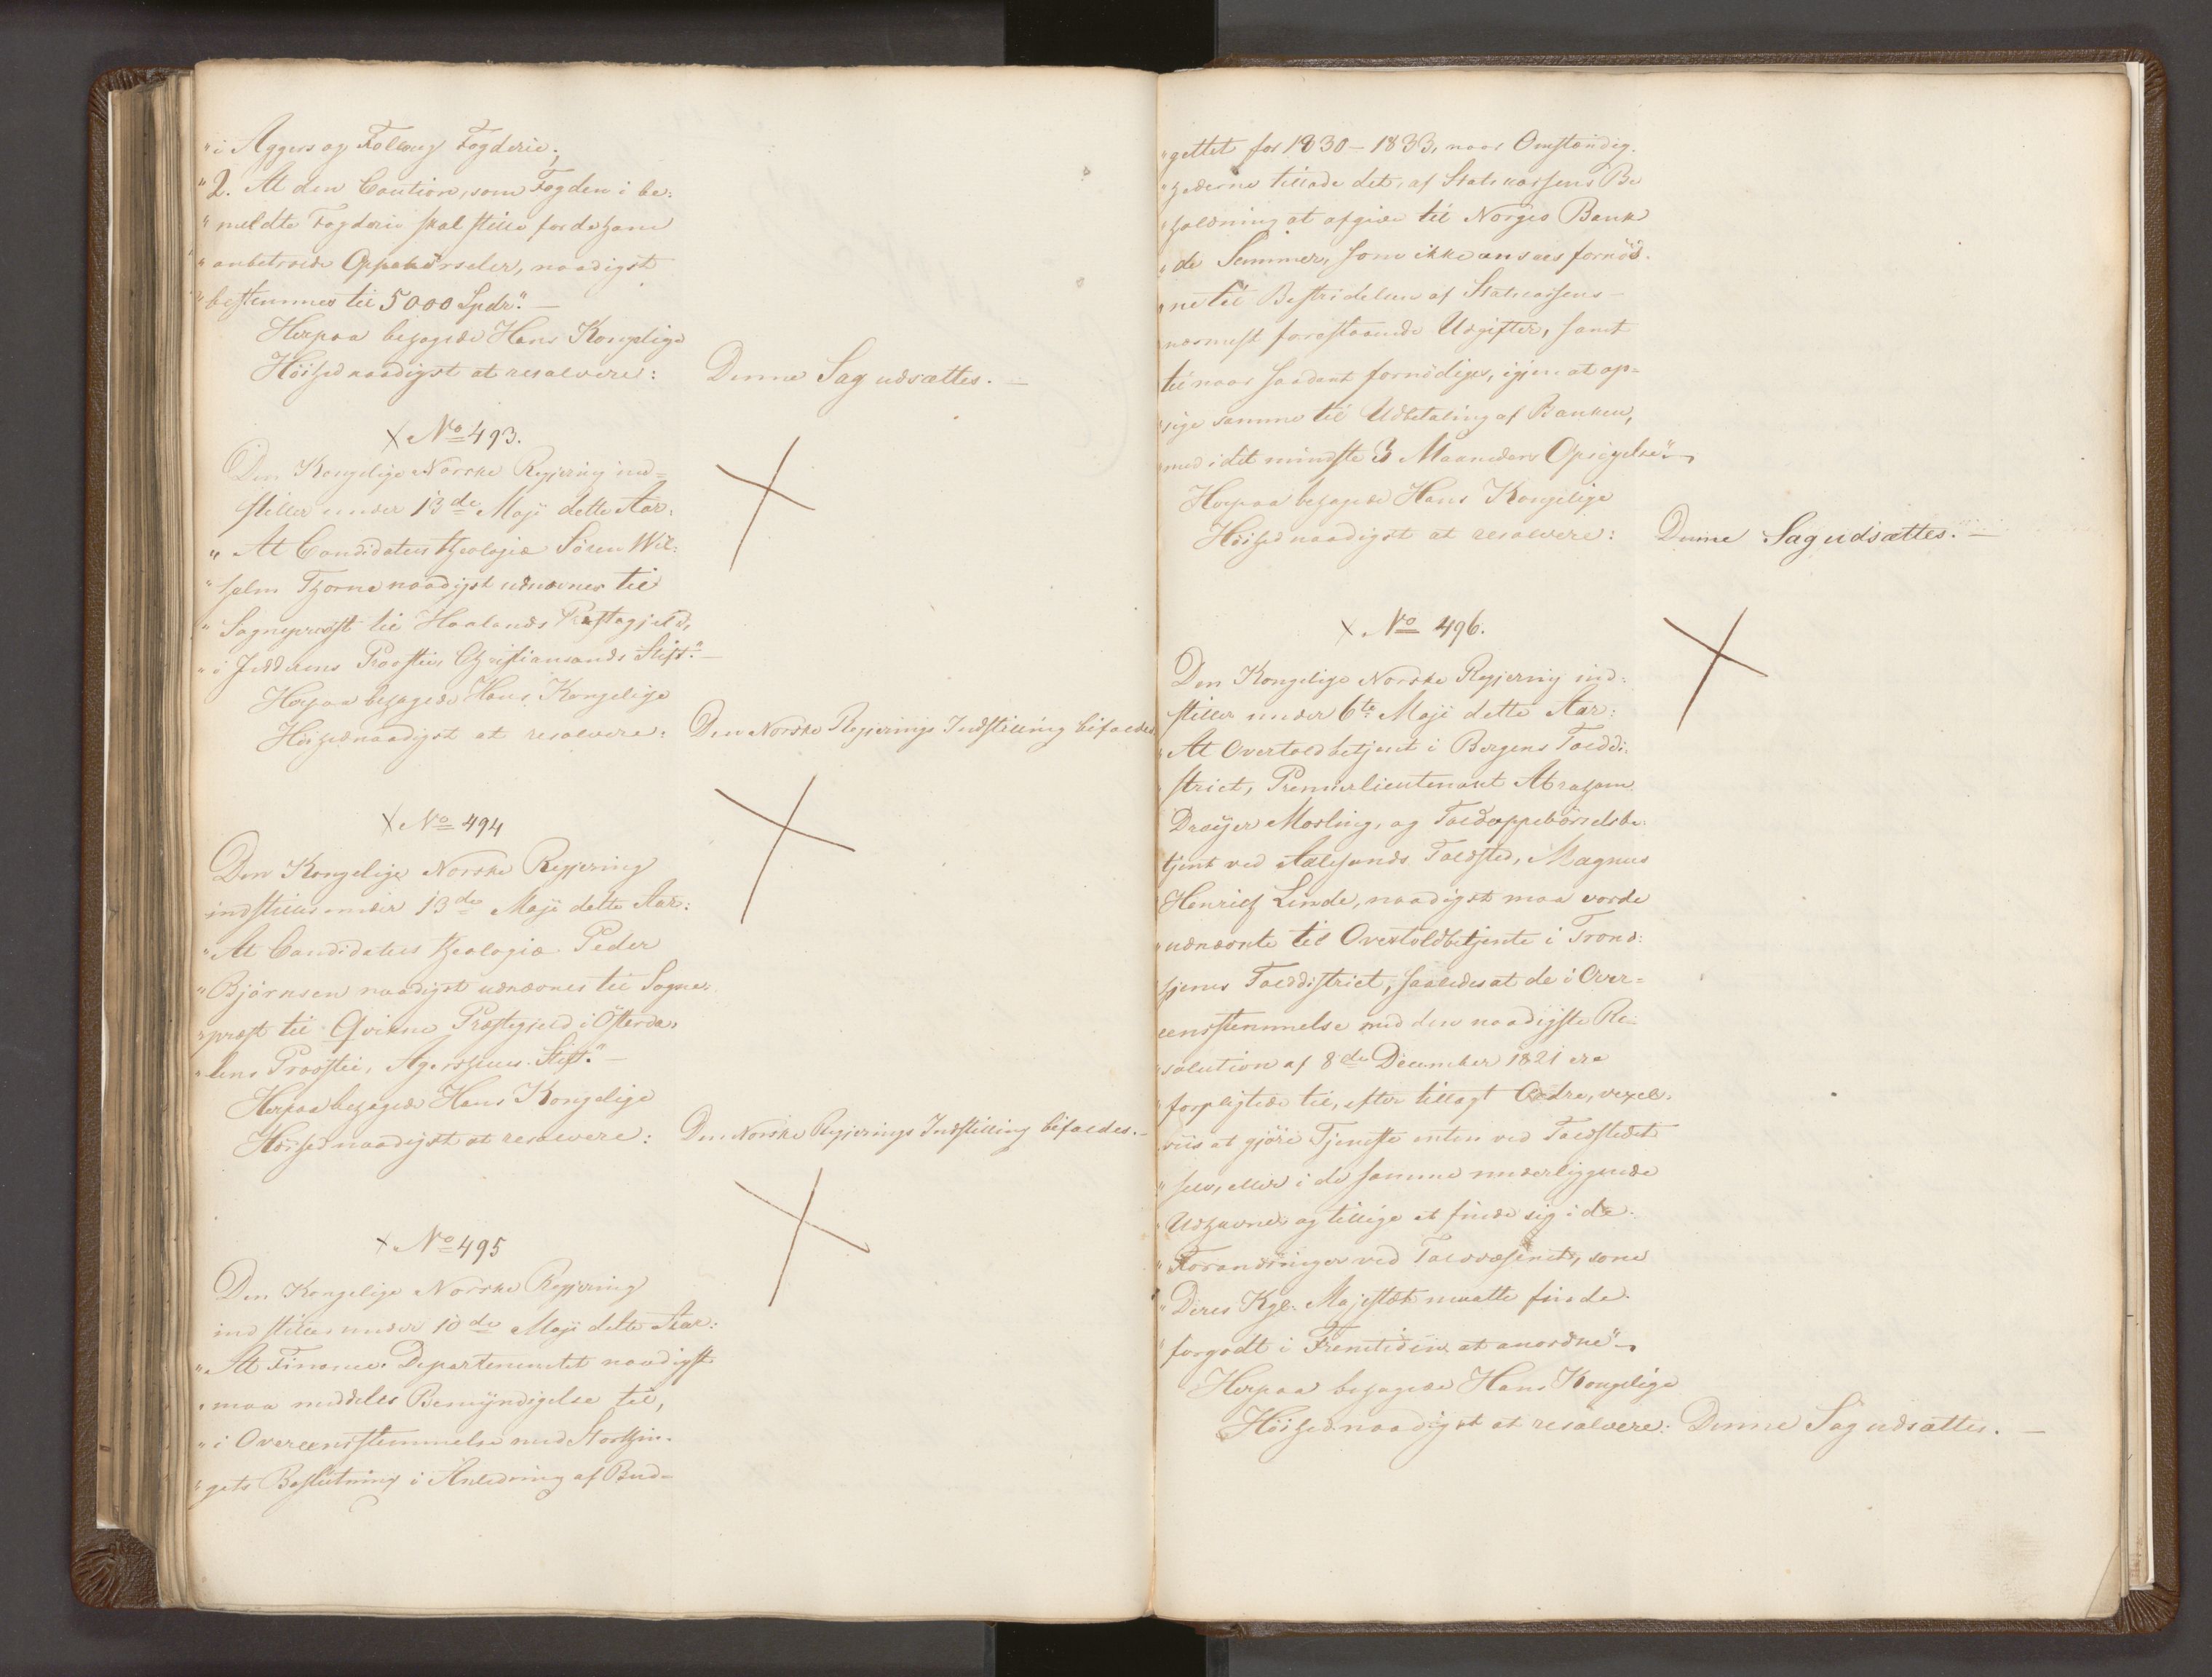 "i Aggers og Follougs Fogderie;
"2. At den Caution, som Fogden i be:
"meldte Fogderie skal stille for de ham
"anbetroede Oppebørseler, naadigst
"bestemmes til 5000 Spdr." —
Herpaa behagede Hans Kongelige
Höihed naadigst at resolvere: Denne Sag udsættes. —
X No 493.
Den Kongelige Norske Regjering ind=
stiller under 13de Maji dette Aar:
"At Candidatus theologiæ Sören Wil:
"helm Thorne naadigst udnævnes til
"Sognepræst til Haalands Præstegjeld,
"i Jedderens Provstie, Christiansands Stift." —
Herpaa behagede Hans Kongelige
Höihed naadigst at resolvere: Den Norske Regjerings Indstilling bifaldes.
X No 494
Den Kongelige Norske Regjering
indstiller under 13de Maji dette Aar:
"At Candidatus theologiæ Peder
"Björnsen naadigst udnævnes til Sogne:
"præst til Qvikne Præstegjeld i Österda,
"lens Provstie, Agershuus Stift." —
Herpaa behagede Hans Kongelige
Höihed naadigst at resolvere: Den Norske Regjerings Indstilling bifaldes. —
X No 495
Den Kongelige Norske Regjering
indstiller under 10de Maji dette Aar:
"At Finance-Departementet naadigst
"maa meddeles Bemÿndigelse til,
"i Overeensstemmelse med Storthin-
"gets Beslutning i Anledning af Bud-
"gettet for 1830–1833, naar Omstændig-
"hederne tillade det, af Statskassens Be
"holdning at afgive til Norges Bank
"de Summer, som ikke ansees fornöd-
"ne til Bestridelsen af Statscassens
"nærmest forestaaende Udgifter, samt
"til naar saadant fornödiges, igjen at op=
"sige samme til Udbetaling af Banken,
"med i det mindste 3 Maaneders Opsigelse" —
Herpaa behagede Hans Kongelige
Höihed naadigst at resolvere: Denne Sag udsættes. —
X No 496.
Den Kongelige Norske Regjering ind:
stiller under 6te Maji dette Aar:
"At Overtoldbetjent i Bergens Tolddi:
"strict, Premierlieutenant Abraham
"Dreÿer Mosling, og Toldoppebörselsbe:
"tjent ved Aalesunds Toldsted, Magnus
"Henrich Linde, naadigst maa vorde
"udnævnte til Overtoldbetjente i Trond:
"hjems Tolddistrict, saaledes at de i Over=
"eensstemmelse med den naadigste Re:
"solution af 8de December 1821 ere
"forpligtede til, efter tillagt Ordre, vexel-
"viis at gjöre Tjeneste enten ved Toldstedet
"selv, eller i de samme underliggende
"Udhavne og tillige at finde sig i de
"Forandringer ved Toldvæsenet, som
"Deres Kgl: Majestæt maatte finde
"forgodt i Fremtiden at anordne" —
Herpaa behagede Hans Kongelige
Höihed naadigst at resolvere: Denne Sag udsættes. —